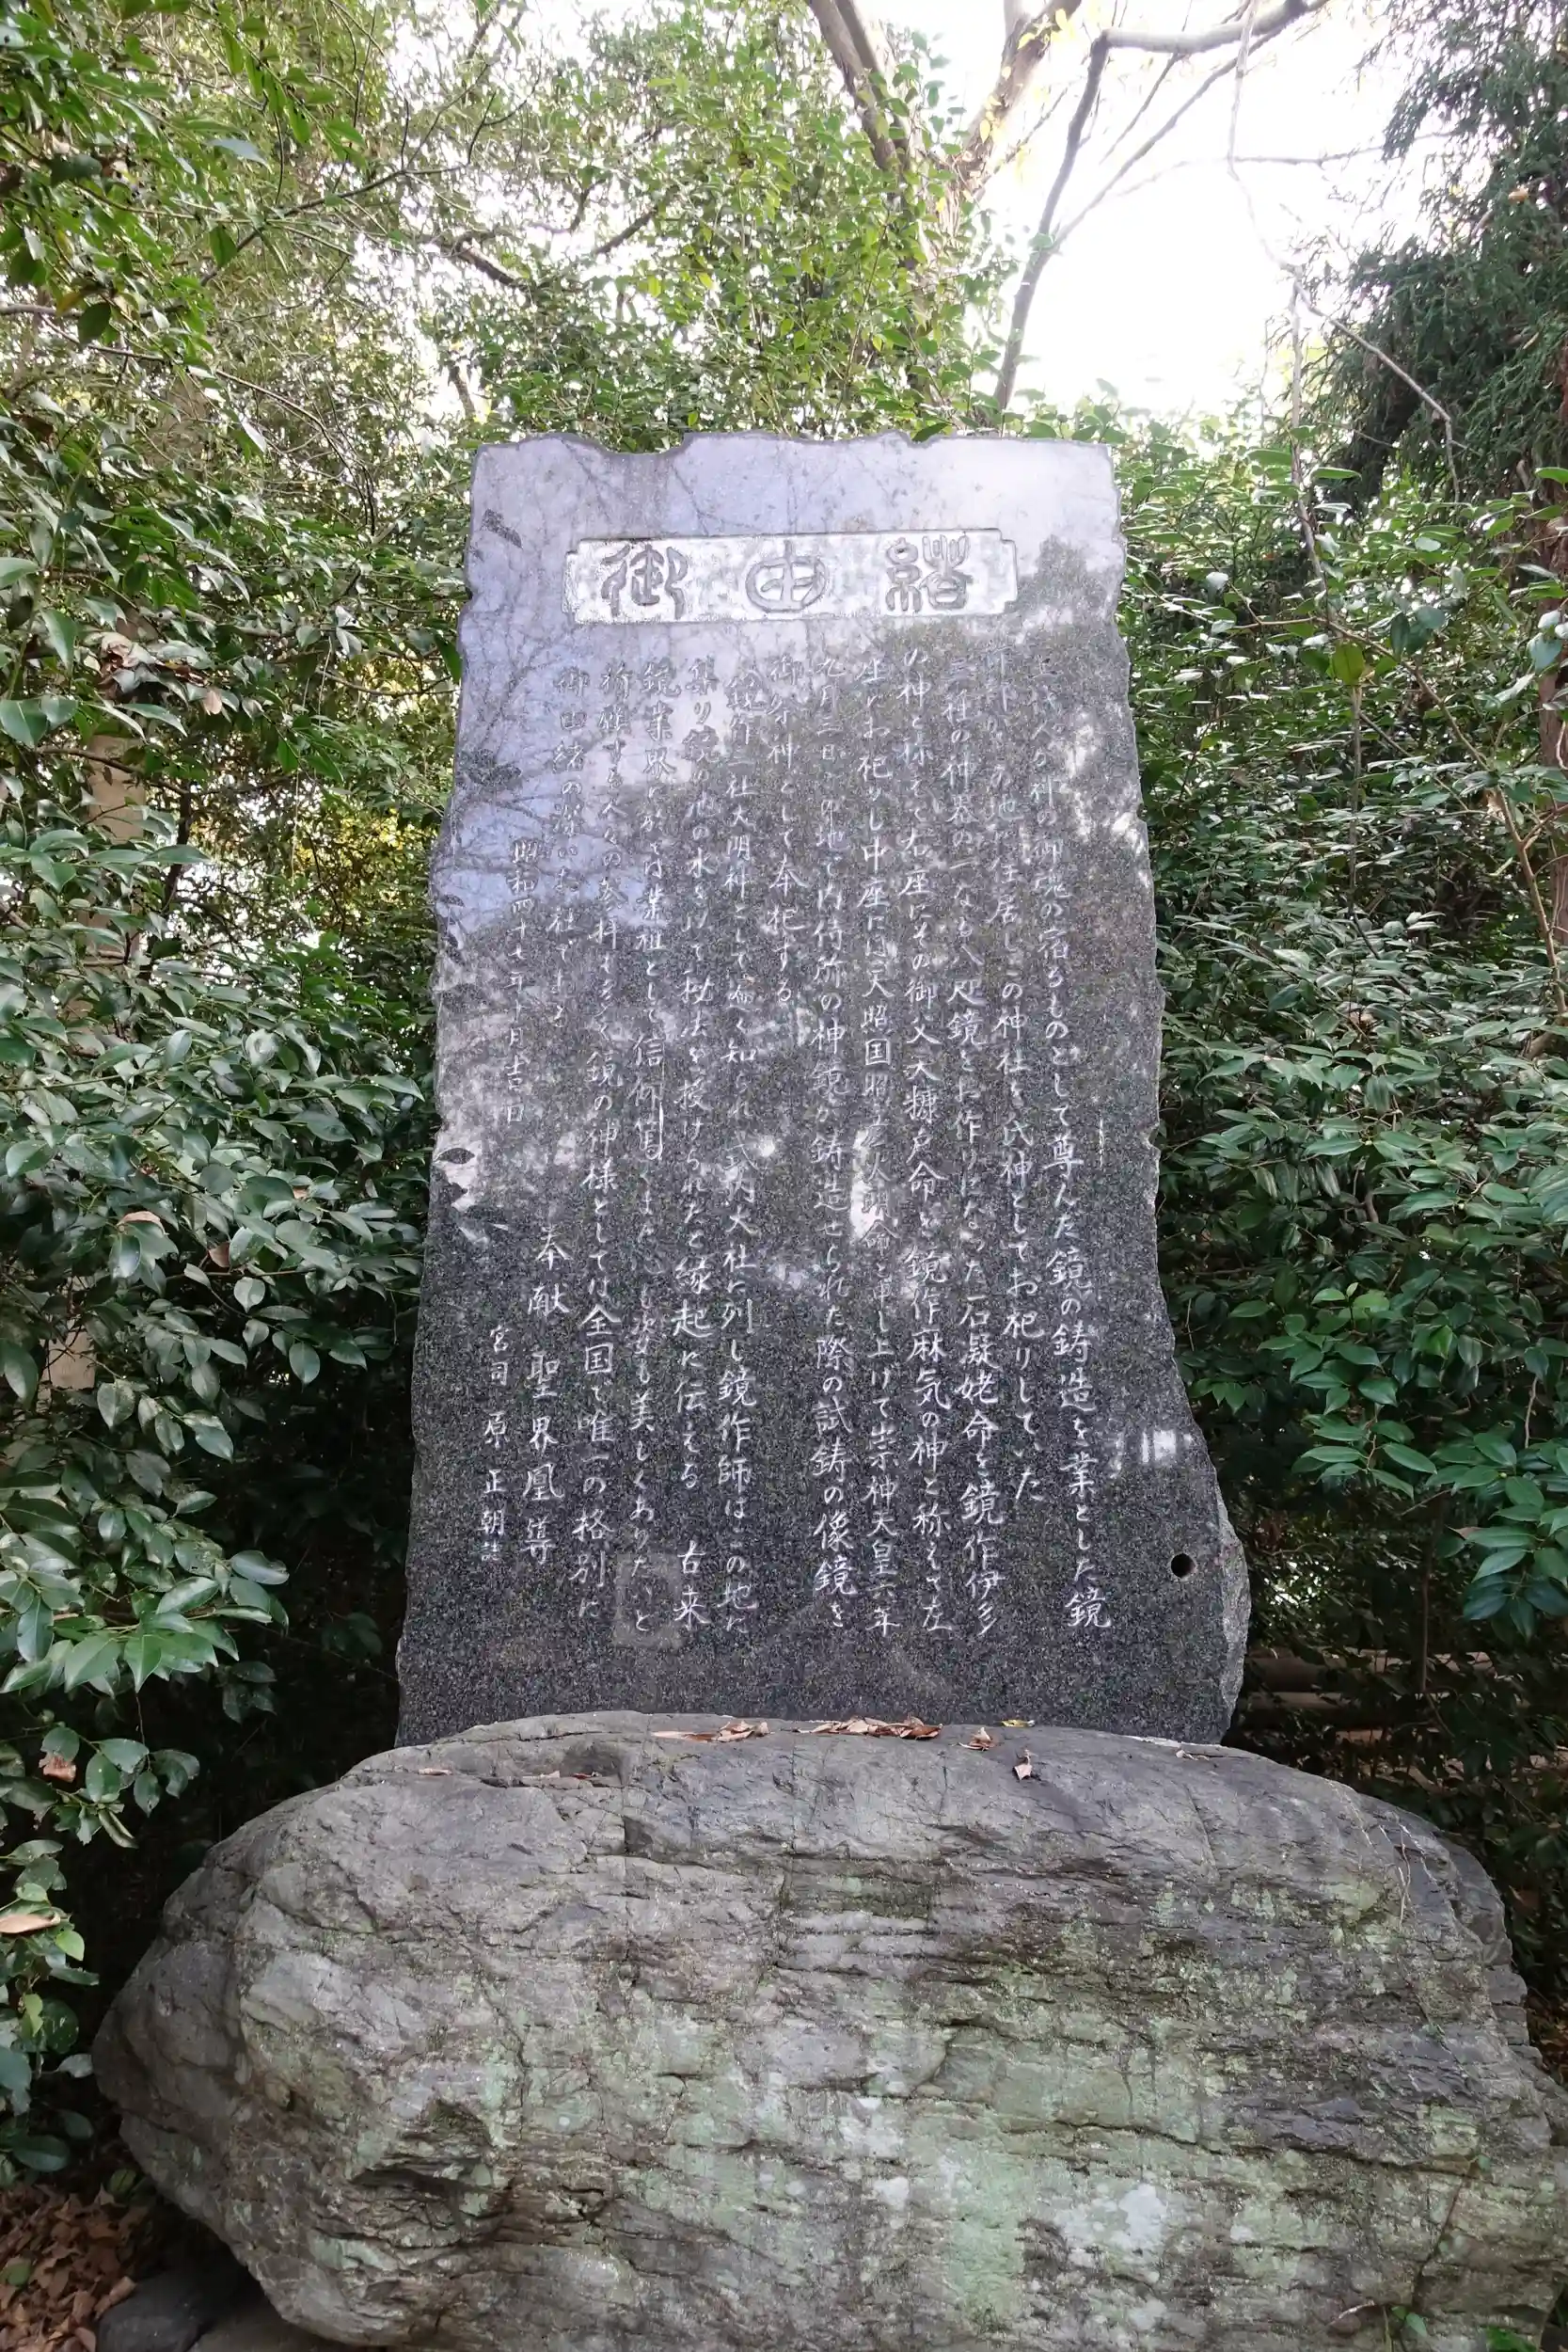 御由緒
古代人が神の御魂の宿るものとして尊んだ鏡の鋳造を業とした鏡
作部がこの地に住居しこの神社を氏神としてお祀りしていた
三種の神器の一なる八咫鏡をお作りになった石凝姥命を鏡作伊多
の神と称えて右座にその御父天糠戸命を鏡作麻気の神と称えて左
座にお祀りし中座には天照国照彦火明命と申し上げて崇神天皇六年
九月三日この地で内侍所の神鏡が鋳造せられた際の試鋳の像鏡を
御祭神として奉祀する
鏡作三社大明神として遍く知られ式内大社に列し鏡作師はこの地に
集り鏡の池の水をうけて秘法を授けられたと縁起に伝える 古来
鏡業界に於ては業祖として信仰篤くまた心も姿も美しくありたいと
祈願する人々の参拝も多く鏡の神様としては全国で唯一の格別に
御由緒の深いお社である
昭和四十七年十月吉日
奉献 聖界凰導
宮司 原 正朝 誌